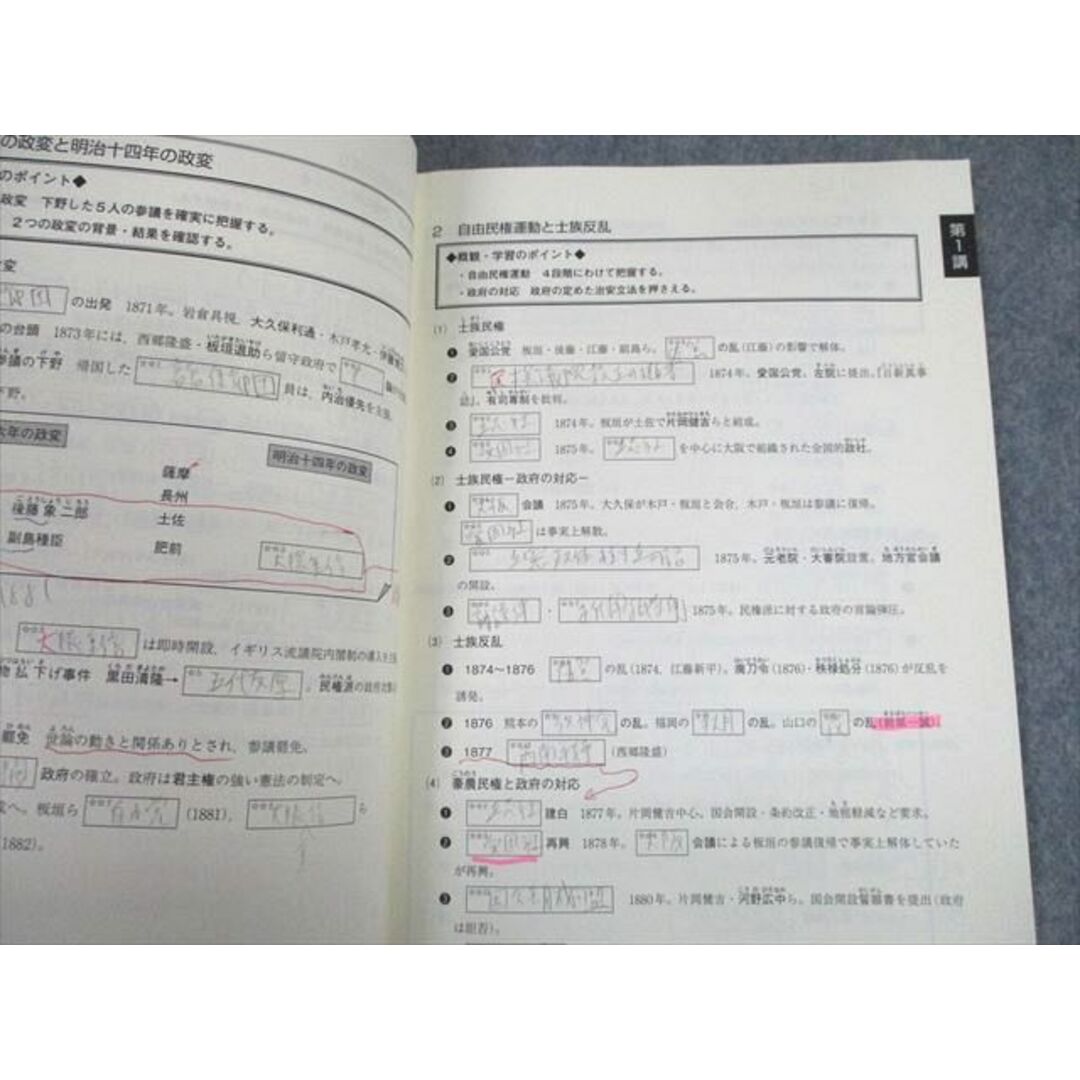 の政変と明治十四年の政変
のポイント◆
政変 下野した5人の参議を確実に把握する。
2つの政変の背景・結果を確認する。
政変
の出発 1871年。岩倉具視、大久保利通・木戸孝允・伊藤博文
の台頭 1873年には、西郷隆盛・板垣退助ら留守政府で
参議の下野 帰国した 岩倉使節団 員は、内治優先を主張
下野。
六年の政変 明治十四年の政変
薩摩
長州
後藤象二郎 土佐
副島種臣 肥前 大隈重信
1881
大隈重信 は即時開設、イギリス流議院内閣制の導入を
物払下げ事件 黒田清隆→ 五代友厚 。民権派の政府攻撃
罷免 世論の動きと関係ありとされ、参議罷免。
政府の確立。政府は君主権の強い憲法の制定へ。
へ。板垣ら 自由党 (1881)、 ら
1882)。
第1講
2 自由民権運動と士族反乱
◆概観・学習のポイント◆
・自由民権運動 4段階にわけて把握する。
・政府の対応 政府の定めた治安立法を押さえる。
(1) 士族民権
❶ 愛国公党 板垣・後藤・江藤・副島ら。 佐賀 の乱(江藤)の影響で解体。
❷ 民撰議院設立の建白書 1874年。愛国公党、左院に提出。『日新真事
誌』。有司専制を批判。
❸ 立志社 1874年。板垣が土佐で片岡健吉らと結成。
❹ 愛国社 1875年。 立志社 を中心に大阪で組織された全国的政社。
(2) 士族民権-政府の対応-
❶ 大阪 会議 1875年。大久保が木戸・板垣と会合。木戸・板垣は参議に復帰。
愛国社 は事実上解散。
❷ 1875年。元老院・大審院設置。地方官会議
の開設。
❸ ・ 1875年。民権派に対する政府の言論弾圧。
(3) 士族反乱
❶ 1874～1876 佐賀 の乱(1874、江藤新平)。廃刀令(1876)・秩禄処分(1876)が反乱を
誘発。
❷ 1876 熊本の 敬神党 の乱。福岡の 秋月 の乱。山口の 萩 の乱(前原一誠)。
❸ 1877 西南戦争 (西郷隆盛)
(4) 豪農民権と政府の対応
❶ 立志社 建白 1877年。片岡健吉中心。国会開設・条約改正・地租軽減など要求。
❷ 愛国社 再興 1878年。 大阪 会議による板垣の参議復帰で事実上解体していた
が再興。
❸ 国会期成同盟 1880年。片岡健吉・河野広中ら。国会開設請願書を提出(政府
は拒否)。